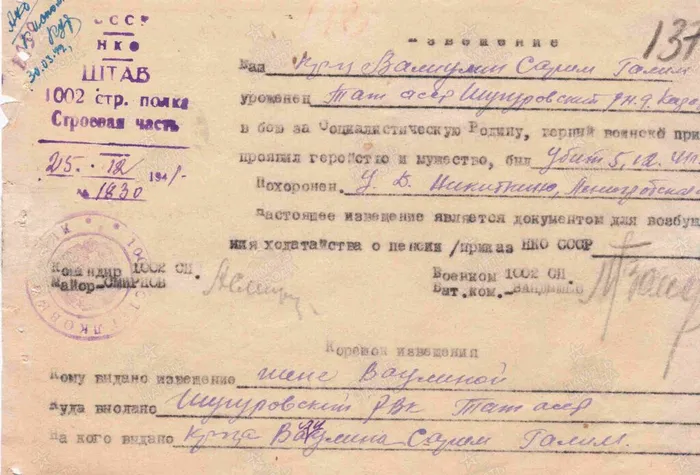 30.03.42
СССР
НКО
ШТАБ
1002 стр. полка
Строевая часть
25. 12 1941.
№ 1830
137
Извещение
Ваш кр-ц Валиулин Сарим Галим
уроженец Тат асср Шугуровский р-н д.
в бою за Социалистическую Родину, верный воинской при
проявив геройство и мужество, был убит 5.12.41
Похоронен У д. Никиткино,
Настоящее извещение является документом для возбуж
ния ходатайства о пенсии /приказ НКО СССР
Командир 1002 СП
Майор СМИРНОВ
Военком 1002 СП.
Бат.ком.
Корешок извещения
Кому выдано извещение жене
Куда выслано Шугуровский РВК Тат асср
На кого выдано кр-ца Сарим Галим.